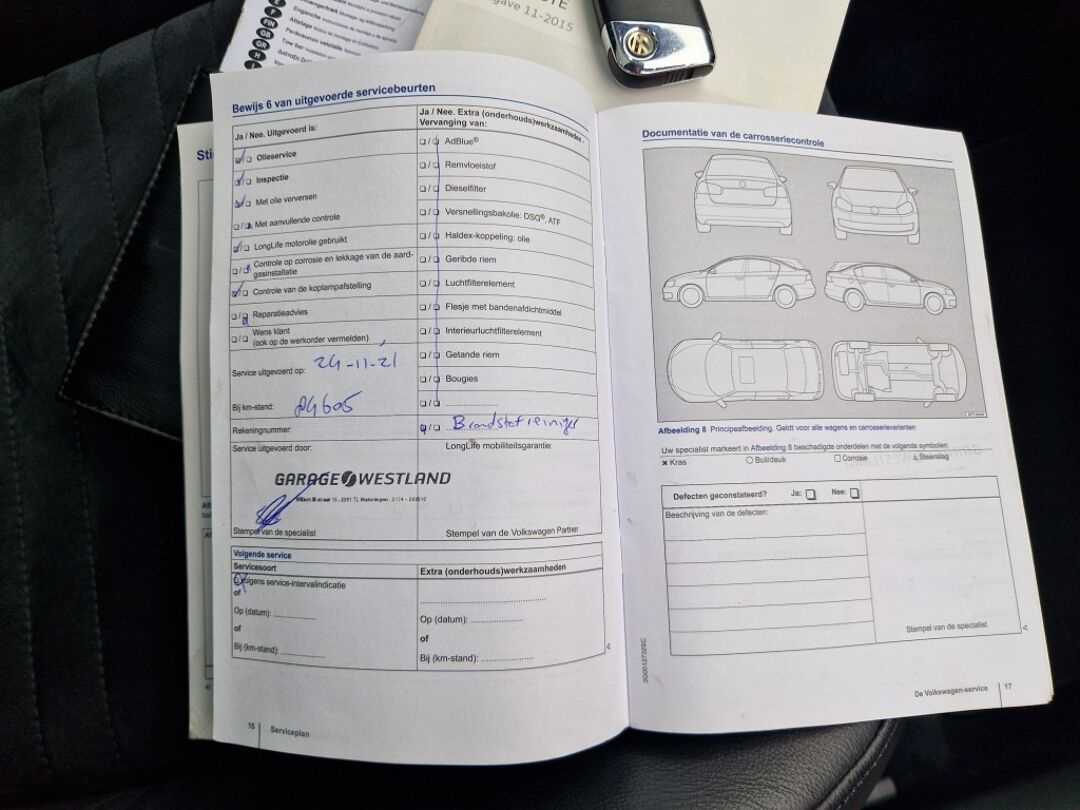 STE
gave 11-2015
FIN
GB
GR
Bewijs 6 van uitgevoerde servicebeurten
Ja / Nee. Uitgevoerd is:
Olieservice
Inspectie
Met olie verversen
Met aanvullende controle
LongLife motorolie gebruikt
Controle op corrosie en lekkage van de aard-
gasinstallatie
Controle van de koplampafstelling
Reparatieadvies
Wens klant
(ook op de werkorder vermelden)
Service uitgevoerd op: 24-11-21
Bij km-stand: 84605
Rekeningnummer:
Service uitgevoerd door:
GARAGE WESTLAND
Stempel van de specialist
Ja / Nee. Extra (onderhouds)werkzaamheden:
Vervanging van:
AdBlue®
Remvloeistof
Dieselfilter
Versnellingsbakolie: DSG®, ATF
Haldex-koppeling: olie
Geribde riem
Luchtfilterelement
Flesje met bandenafdichtmiddel
Interieurluchtfilterelement
Getande riem
Bougies
Brandstofreiniger
LongLife mobiliteitsgarantie:
Stempel van de Volkswagen Partner
Volgende service
Servicesoort
service-intervalindicatie
of
Op (datum):
of
Bij (km-stand):
Extra (onderhouds)werkzaamheden
Op (datum):
of
Bij (km-stand):
16 Serviceplan
Documentatie van de carrosseriecontrole
Afbeelding 8 Principeafbeelding. Geldt voor alle wagens en carrosserievarianten
Uw specialist markeert in Afbeelding 8 beschadigde onderdelen met de volgende symbolen:
Kras Buil/deuk Corrosie Steenslag
Defecten geconstateerd? Ja: Nee:
Beschrijving van de defecten:
Stempel van de specialist
De Volkswagen-service 17